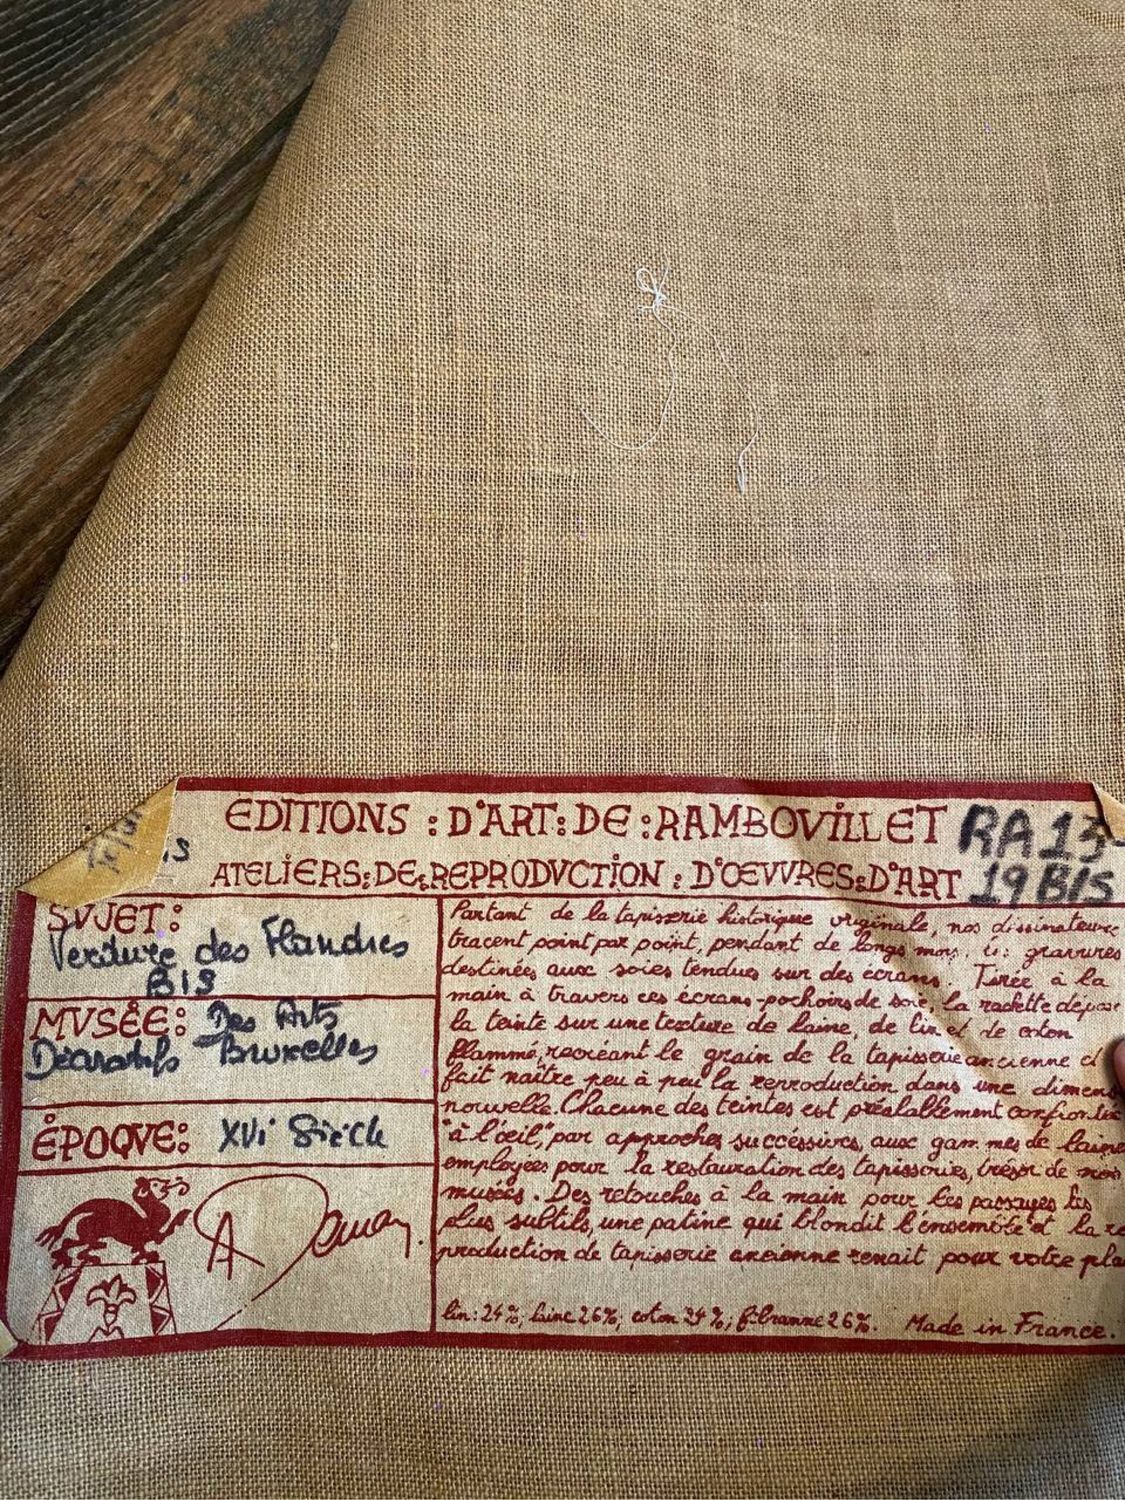 EDITIONS : D'ART : DE : RAMBOVILLET RA 13
ATELIERS : DE : REPRODVCTION : D'ŒVVRES : D'ART 19 BIS
SVJET :
Verdure des Flandres
BIS
MVSÉE : Des Arts
Décoratifs Bruxelles
ÉPOQVE : XVI Siècle
Partant de la tapisserie historique originale, nos dessinateurs
tracent point par point, pendant de longs mois, les gravures
destinées aux soies tendues sur des écrans. Tirée à la
main à travers ces écrans-pochoirs de soie, la raclette dépose
la teinte sur une texture de laine, de lin et de coton
flammé, recréant le grain de la tapisserie ancienne et
fait naître peu à peu la reproduction dans une dimens
nouvelle. Chacune des teintes est préalablement
"à l'œil," par approches successives, aux gammes de laine
employées pour la restauration des tapisseries, trésor de nos
musées. Des retouches à la main pour les passages les
plus subtils, une patine qui blondit l'ensemble et la re
production de tapisserie ancienne renait pour votre plai
lin : 24 %; laine 26 %; coton 24 %; fibranne 26 %. Made in France.